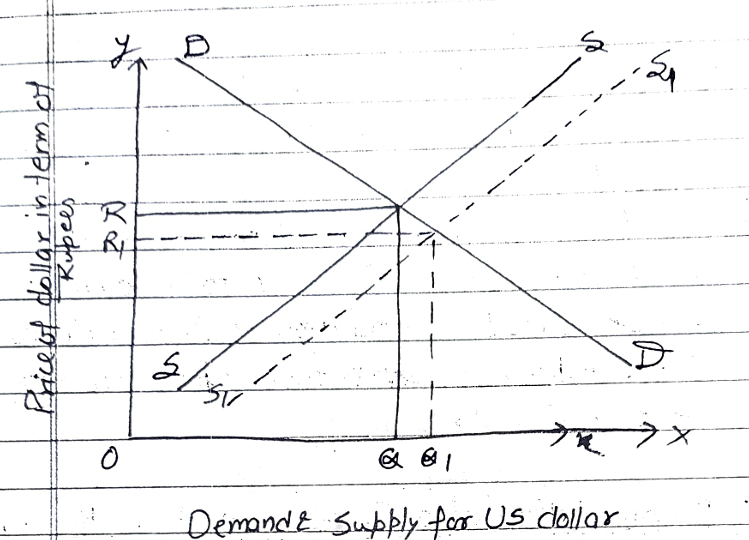 Y
D
S
S1
Price of dollar in term of
Rupees
R
R1
S
S1
D
O
Q
Q1
x
X
Demand & Supply for US dollar